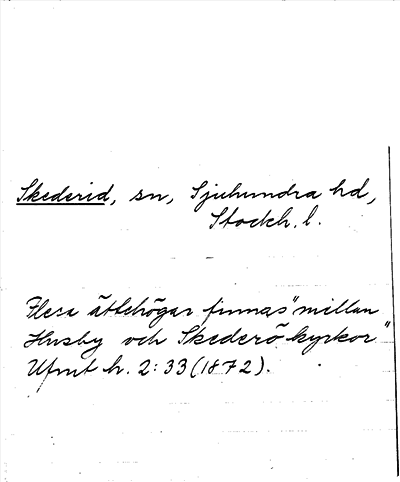 Skederid, sn, Sjuhundra hd,
Stockh. l.
Flera ättehögar finnas "mellan
Husby och Skederö kyrkor"
Ufmt h. 2:33 (1872).